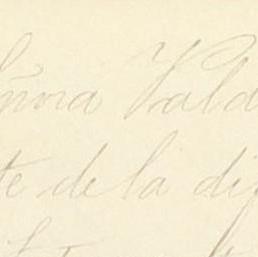 ñora Vald
te de la dif